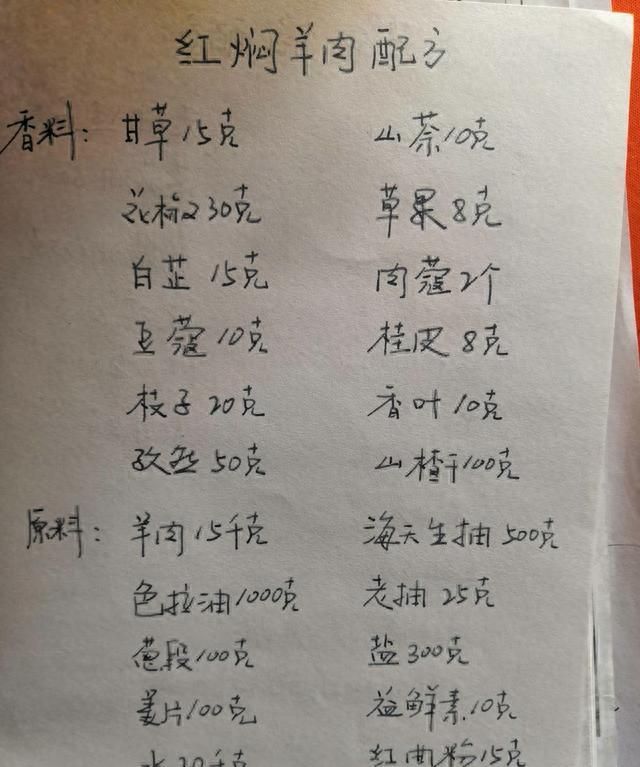 红焖羊肉配方
香料: 甘草15克 山萘10克
花椒230克 草果8克
白芷15克 肉蔻2个
豆蔻10克 桂皮8克
枝子20克 香叶10克
孜然50克 山楂干100克
原料: 羊肉15千克 海天生抽500克
色拉油1000克 老抽25克
葱段100克 盐300克
姜片100克 益鲜素10克
水20千克 红曲粉15克